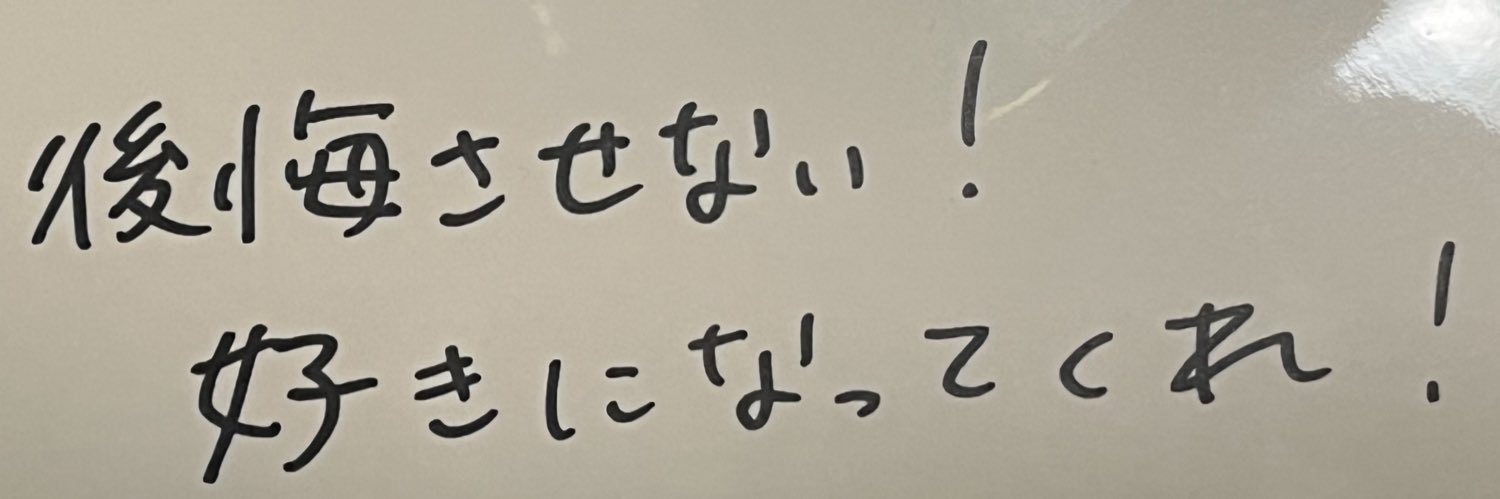 後悔させない!
好きになってくれ!